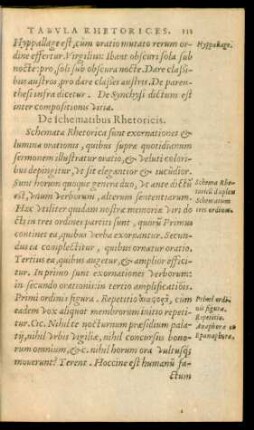 TABVLA RHETORICES. 115
Hyppallage est, cùm oratio mutato rerum or
dine effertur. Virgilius: Ibant obscuri sola sub
nocte: pro, soli sub obscura nocte. Dare classi-
bus austros, pro dare classes austris. De paren-
thesi infra dicetur. De Synchysi dictum est
inter compositionis vitia.
De schematibus Rhetoricis.
Schemata Rhetorica sunt exornationes &
lumina orationis, quibus supra quotidianum
sermonem illustratur oratio, & veluti coloribus
depingitur, vt sit elegantior & iucūdior.
Sunt horum quoque genera duo, vt ante dictū
est, vnum verborum, alterum sententiarum.
Hæc vtiliter quidam nostra memoria viri do
cti in tres ordines partiti sunt, quorū Primus
continet ea, quibus verba exornantur. Secun-
dus ea complectitur, quibus ornatur oratio.
Tertius ea, quibus augetur, & amplior effici-
tur. In primo sunt exornationes verborum:
in secundo orationis: in tertio amplificatiōis.
Primi ordinis figura. Repetitio, cùm
eadem vox aliquot membrorum initio repeti-
tur. Cic. Nihil te nocturnum præsidium pala-
tij, nihil vrbis vigiliæ, nihil concursus bono-
rum omnium, &c. nihil horum ora vultusq;
mouerunt? Terent. Hoccine est humanū fa-
ctum
Hyppallage.
Schema Rhe-
toricū duplex
Schematum
tres ordines.
Primi ordi-
nis figuræ.
Repetitio.
Anaphora
Epanaphora.